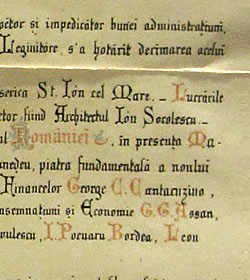 octor si impedicător bunei administratiuni,
Leginitóre, s'a hotărît derimarea acelui
serica St. Ión cel Mare. _ Lucrările
ctor fiind Architectul Ión Socolescu._
al României, în presența Ma-
nedeu, piatra fundamentală a noului
Financelor George C. Cantacuzino,
nsemnațiuni și Economie G.G. Assan,
vulescu, I. Pocuaru Bordea, Leon